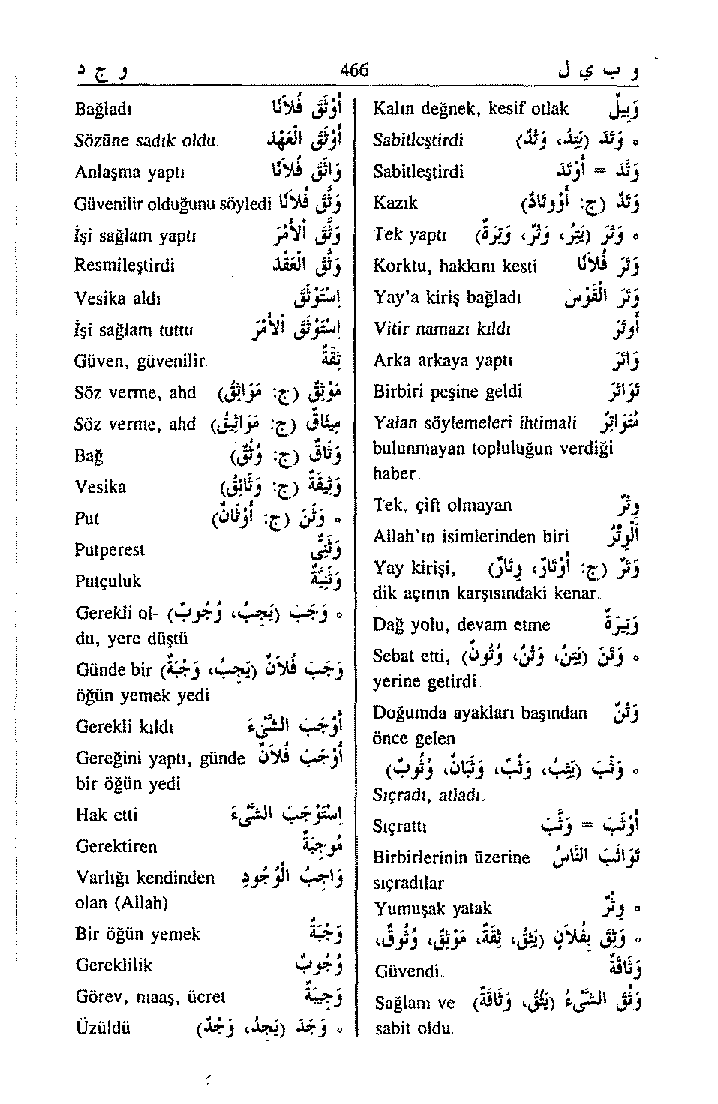 و ب ي ل
466
و ج د
Kalın değnek, kesif otlak وَبِيلٌ
Sabitleştirdi ° وَتَدَ (يَتِدُ، وَتْدٌ)
Sabitleştirdi وَتَّدَ = أَوْتَدَ
Kazık وَتَدٌ (ج: أَوْتَادٌ)
Tek yaptı ° وَتَرَ (يَتِرُ، وَتْرٌ، وَتِيرَةٌ)
Korktu, hakkını kesti وَتَرَ فُلاَنًا
Yay'a kiriş bağladı وَتَّرَ الْقَوْسَ
Vitir namazı kıldı أَوْتَرَ
Arka arkaya yaptı وَاتَرَ
Birbiri peşine geldi تَوَاتَرَ
Yalan söylemeleri ihtimali مُتَوَاتِرٌ
bulunmayan topluluğun verdiği
haber.
Tek, çift olmayan وِتْرٌ
Allah'ın isimlerinden biri اَلْوِتْرُ
Yay kirişi, وَتَرٌ (ج: أَوْتَارٌ، وِتَارٌ)
dik açının karşısındaki kenar.
Dağ yolu, devam etme وَتِيرَةٌ
Sebat etti, ° وَتَنَ (يَتِنُ، وَتْنٌ، وُتُونٌ)
yerine getirdi.
Doğumda ayakları başından وَتْنٌ
önce gelen
° وَثَبَ (يَثِبُ، وَثْبٌ، وَثَبَانٌ، وُثُوبٌ)
Sıçradı, atladı.
Sıçrattı أَوْثَبَ = وَثَّبَ
Birbirlerinin üzerine تَوَاثَبَ النَّاسُ
sıçradılar
Yumuşak yatak ° وِثْرٌ
° وَثِقَ بِفُلاَنٍ (يَثِقُ، ثِقَةٌ، مَوْثِقٌ، وُثُوقٌ،
Güvendi. وَثَاقَةٌ
Sağlam ve وَثُقَ الشَّيْءُ (يَثُقُ، وَثَاقَةٌ)
sabit oldu.
Bağladı أَوْثَقَ فُلاَنًا
Sözüne sadık oldu. أَوْثَقَ الْعَهْدَ
Anlaşma yaptı وَاثَقَ فُلاَنًا
Güvenilir olduğunu söyledi وَثَّقَ فُلاَنًا
İşi sağlam yaptı وَثَّقَ الأَمْرَ
Resmileştirdi وَثَّقَ الْعَقْدَ
Vesika aldı إِسْتَوْثَقَ
İşi sağlam tuttu إِسْتَوْثَقَ الأَمْرَ
Güven, güvenilir. ثِقَةٌ
Söz verme, ahd مَوْثِقٌ (ج: مَوَاثِقُ)
Söz verme, ahd مِيثَاقٌ (ج: مَوَاثِيقُ)
Bağ وَثَاقٌ (ج: وُثُقٌ)
Vesika وَثِيقَةٌ (ج: وَثَائِقُ)
Put ° وَثَنٌ (ج: أَوْثَانٌ)
Putperest وَثَنِيٌّ
Putçuluk وَثَنِيَّةٌ
Gerekli ol- ° وَجَبَ (يَجِبُ، وُجُوبٌ)
du, yere düştü
Günde bir وَجَبَ فُلاَنٌ (يَجِبُ، وَجْبَةٌ)
öğün yemek yedi
Gerekli kıldı أَوْجَبَ الشَّيْءَ
Gereğini yaptı, günde أَوْجَبَ فُلاَنٌ
bir öğün yedi
Hak etti إِسْتَوْجَبَ الشَّيْءَ
Gerektiren مُوجِبَةٌ
Varlığı kendinden وَاجِبُ الْوُجُودِ
olan (Allah)
Bir öğün yemek وَجْبَةٌ
Gereklilik وُجُوبٌ
Görev, maaş, ücret وَجِيبَةٌ
Üzüldü ° وَجَدَ (يَجِدُ، وَجْدٌ)